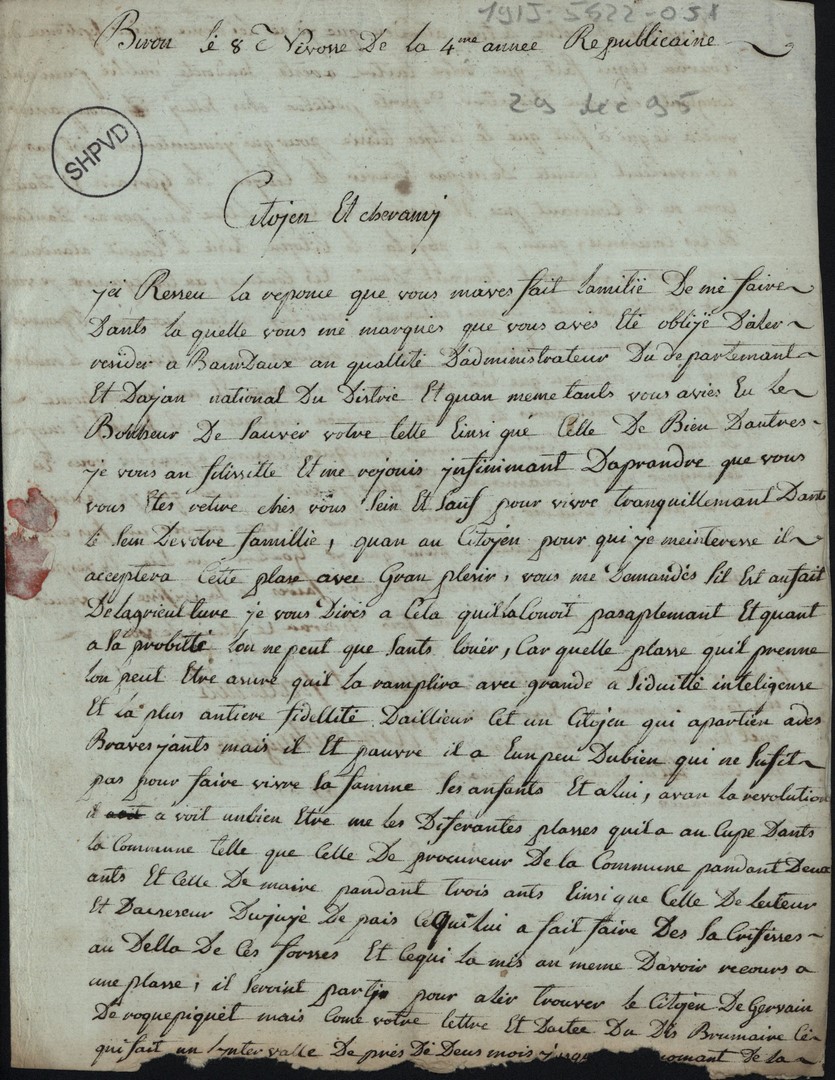 1915-5422-051
Biron le 8 Nivosse De la 4me année Republicaine
29 dec 95
SHPVD
Citojen Et cheramij
jei Resseu la reponce que vous maves fait lamitié De me faire
Dants la quelle vous me marqués que vous avés Eté oblijé Daler
resider a Baurdaux an quallité Dadministrateur Du departemant
Et Dajan national Du Distric Et quan meme tants vous aviés Eu le
Bonheur De sauver votre tette Einsi que Celle De Bien Dautres
je vous an felissitte Et me rejouis jnfinimant Daprandre que vous
vous Etes retiré chés vous sein Et sauf pour vivre tranquillemant Dants
le sein De votre famillie, quan au Citojen pour qui je meinteresse il
acceptera Cette plase avec Gran plesir, vous me Demandés sil Est aufait
Delagriculture je vous Dirés a Cela quil la Conoit pasaplemant Et quant
a sa probitté lon ne peut que sants louer, Car quelle plasse quil prenne
lon peut Etre asuré quil la ramplira avec grande a siduitté inteligense
Et la plus antiere fidellité Daillieur Cet un Citojen qui apartien a des
Braves jants mais il Et pauvre il a Eun peu Dubien qui ne sufit
pas pour faire vivre sa famme ses anfants Et a lui, avan la revolution
il a voit un bien Etre me les Diferantes plasses quil a au Cupé Dants
la Commune telle que Celle De procureur De la Commune pandant Deux
ants Et Celle De maire pandant trois ants Einsi que Celle De leuteur
Et Daseseur Dujuje De pais Cequi lui a fait faire Des sa Crifisses
au Della De Ces forsses Et Cequi la mis au meme Davoir recours a
une plasse; il seroint partjr pour aler trouver le Citojen De Gervain
De roquepiquet mais Come votre lettre Et Dactée Du Dis Brumaire Ce
qui fait un Jntervalle De prés De Deus mois momant de la